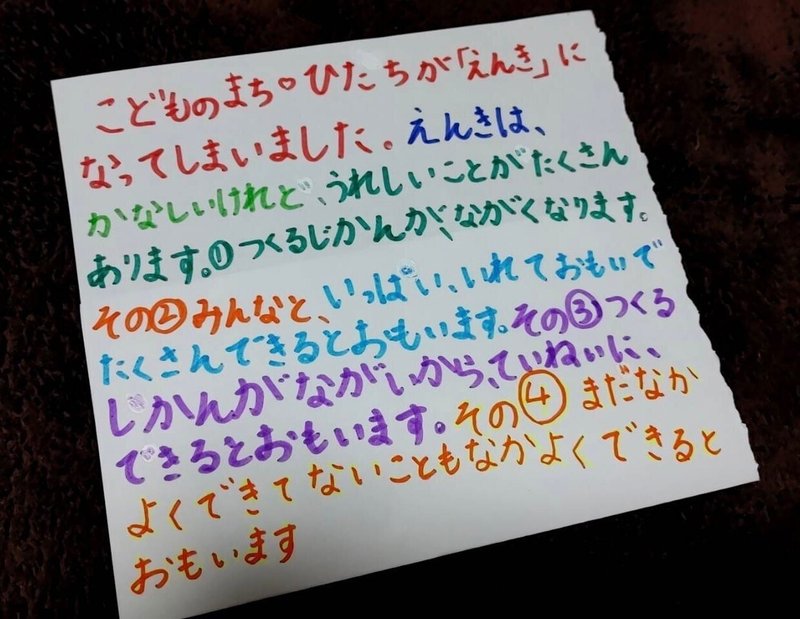 こどものまち♡ひたちが「えんき」に
なってしまいました。えんきは、
かなしいけれど、うれしいことがたくさん
あります。①つくるじかんが、ながくなります。
その②みんなと、いっぱい、いれておもいで
たくさんできるとおもいます。その③つくる
じかんがながいから、ていねいに、
できるとおもいます。その④まだなか
よくできてないこともなかよくできると
おもいます